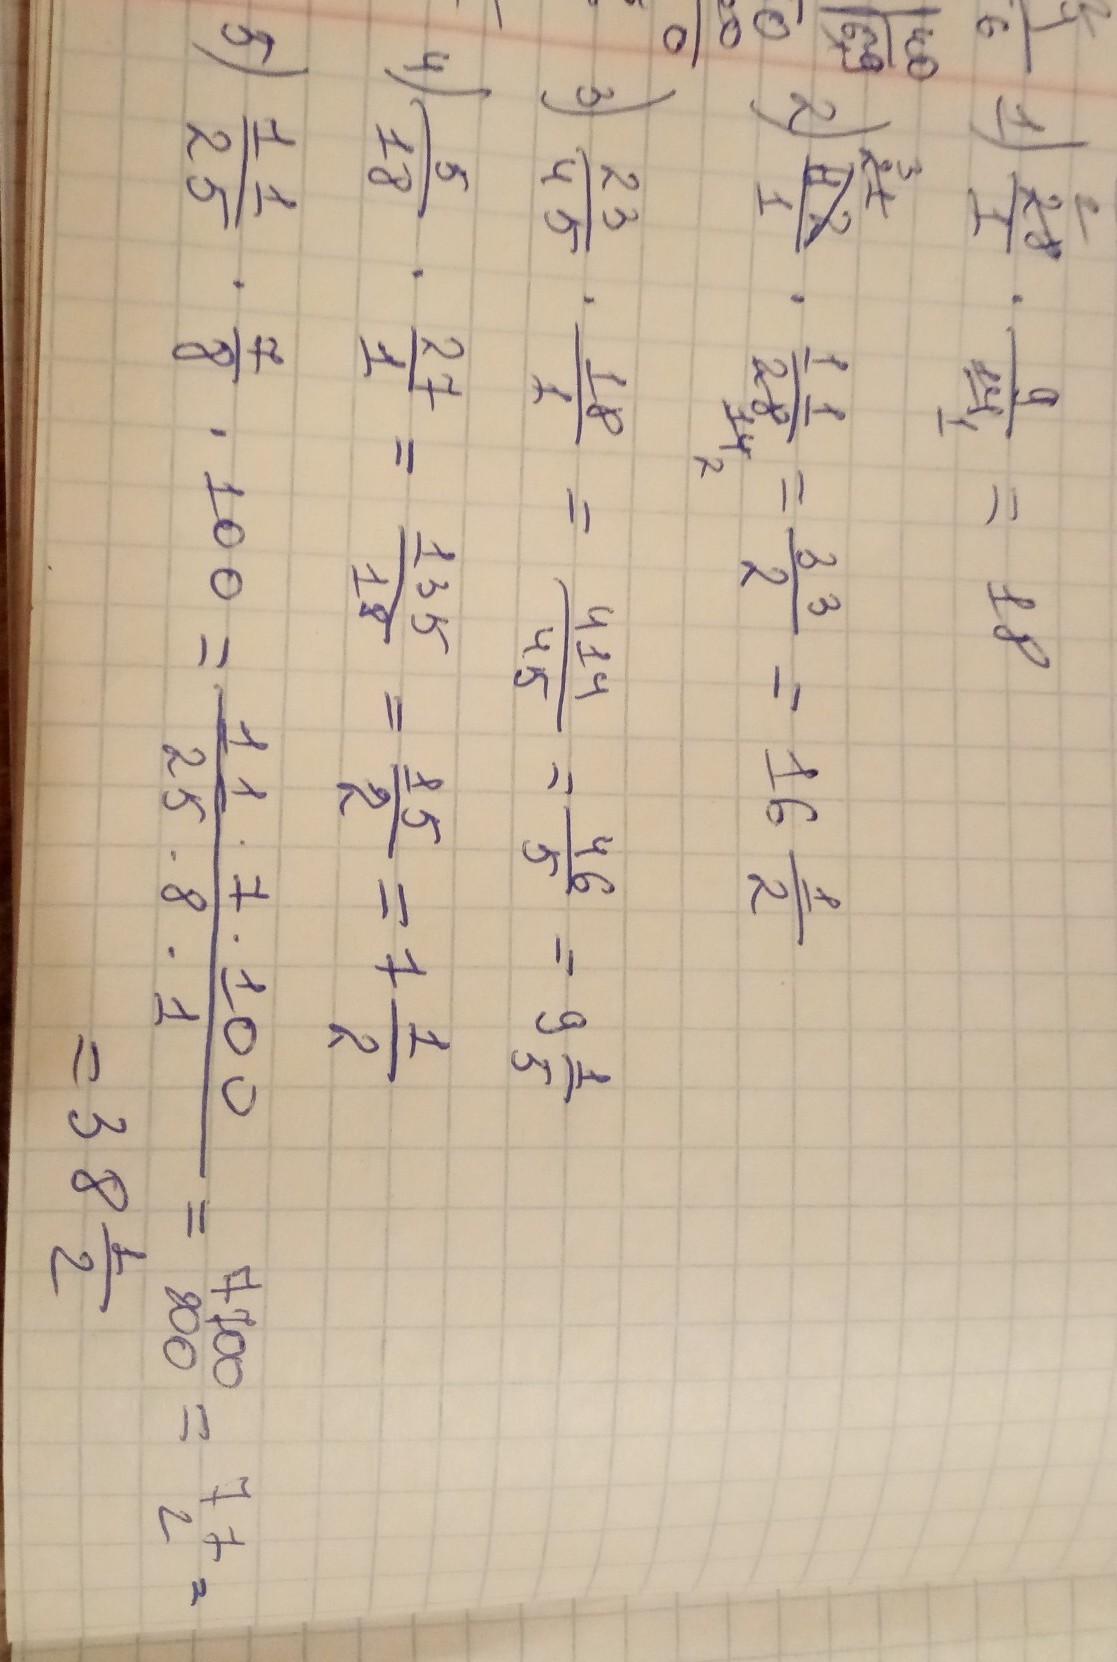 1) 28/1 · 9/14 = 18
2) 42/1 · 11/28 = 33/2 = 16 1/2
3) 23/45 · 18/1 = 414/45 = 46/5 = 9 1/5
4) 5/18 · 27/1 = 135/18 = 15/2 = 7 1/2
5) 11/25 · 7/8 · 100 = 11 · 7 · 100/25 · 8 · 1 = 7700/200 = 77/2 =
= 38 1/2